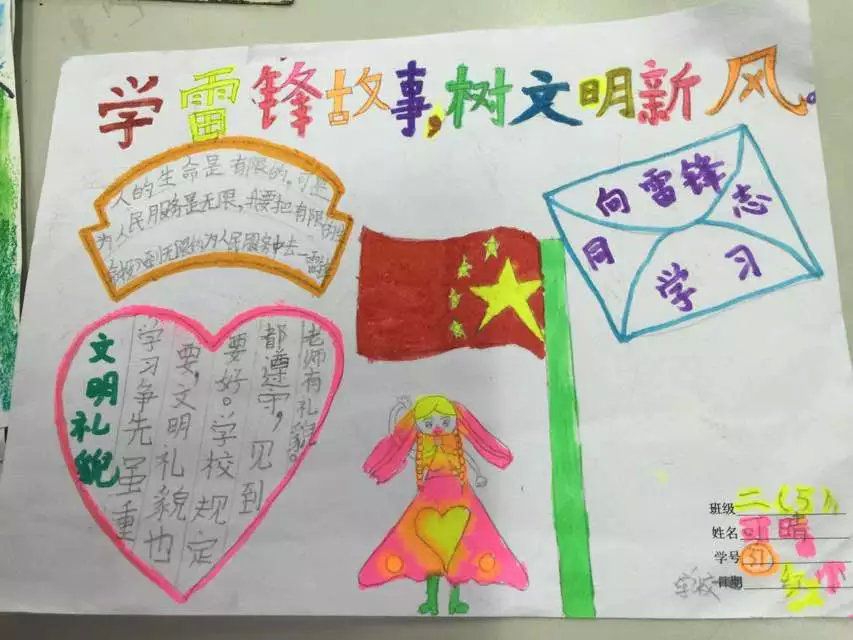 学雷锋故事,树文明新风。
人的生命是有限的,可是
为人民服务是无限,我要把有限的生
到无限的为人民服务中去—雷锋
向雷锋
同志
学习
文明礼貌
学习争先虽重
要,文明礼貌也
要好。学校规定
都遵守,见到
老师有礼貌。
班级 二(5)
姓名 可晴
学号 51
学校 日期 红小